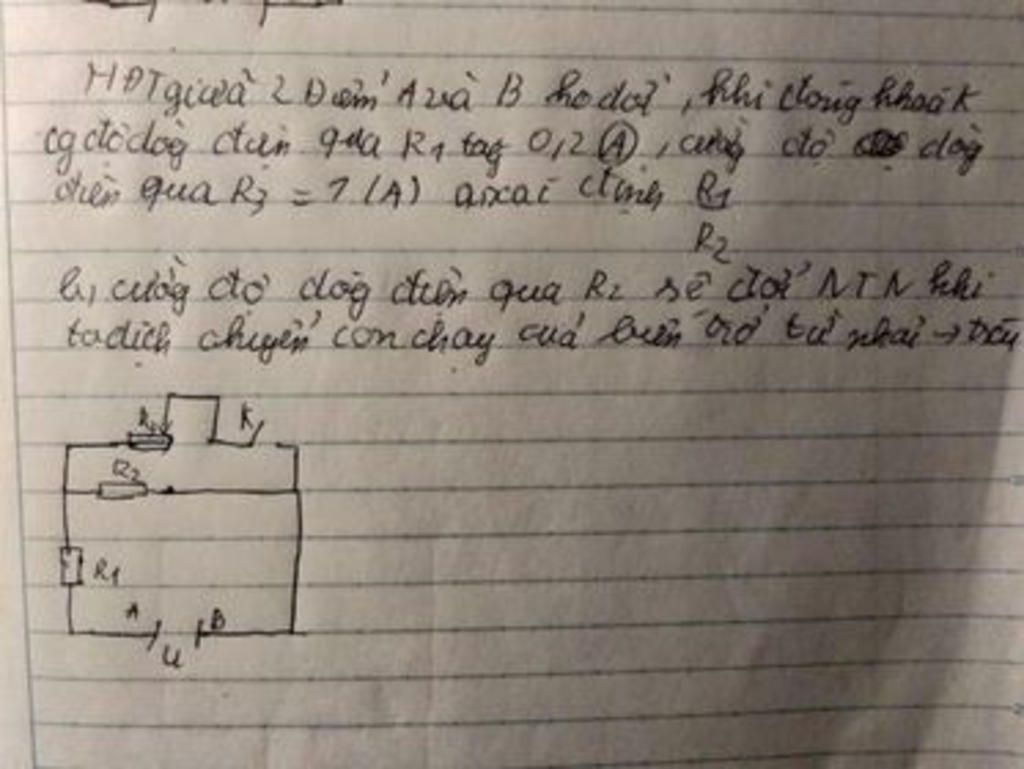 HĐT giữa 2 Điểm A và B ko đổi, khi đóng khoá K
cg độ dòg điện qua R1 tăg 0,2 (A), cườg độ dòg
điện qua R3 = 1 (A) a, xác định R1
R2
b, cường độ dòg điện qua R2 sẽ đổi NTN khi
ta dịch chuyển con chạy của biến trở từ phải →
K
R2
R1
A
B
U